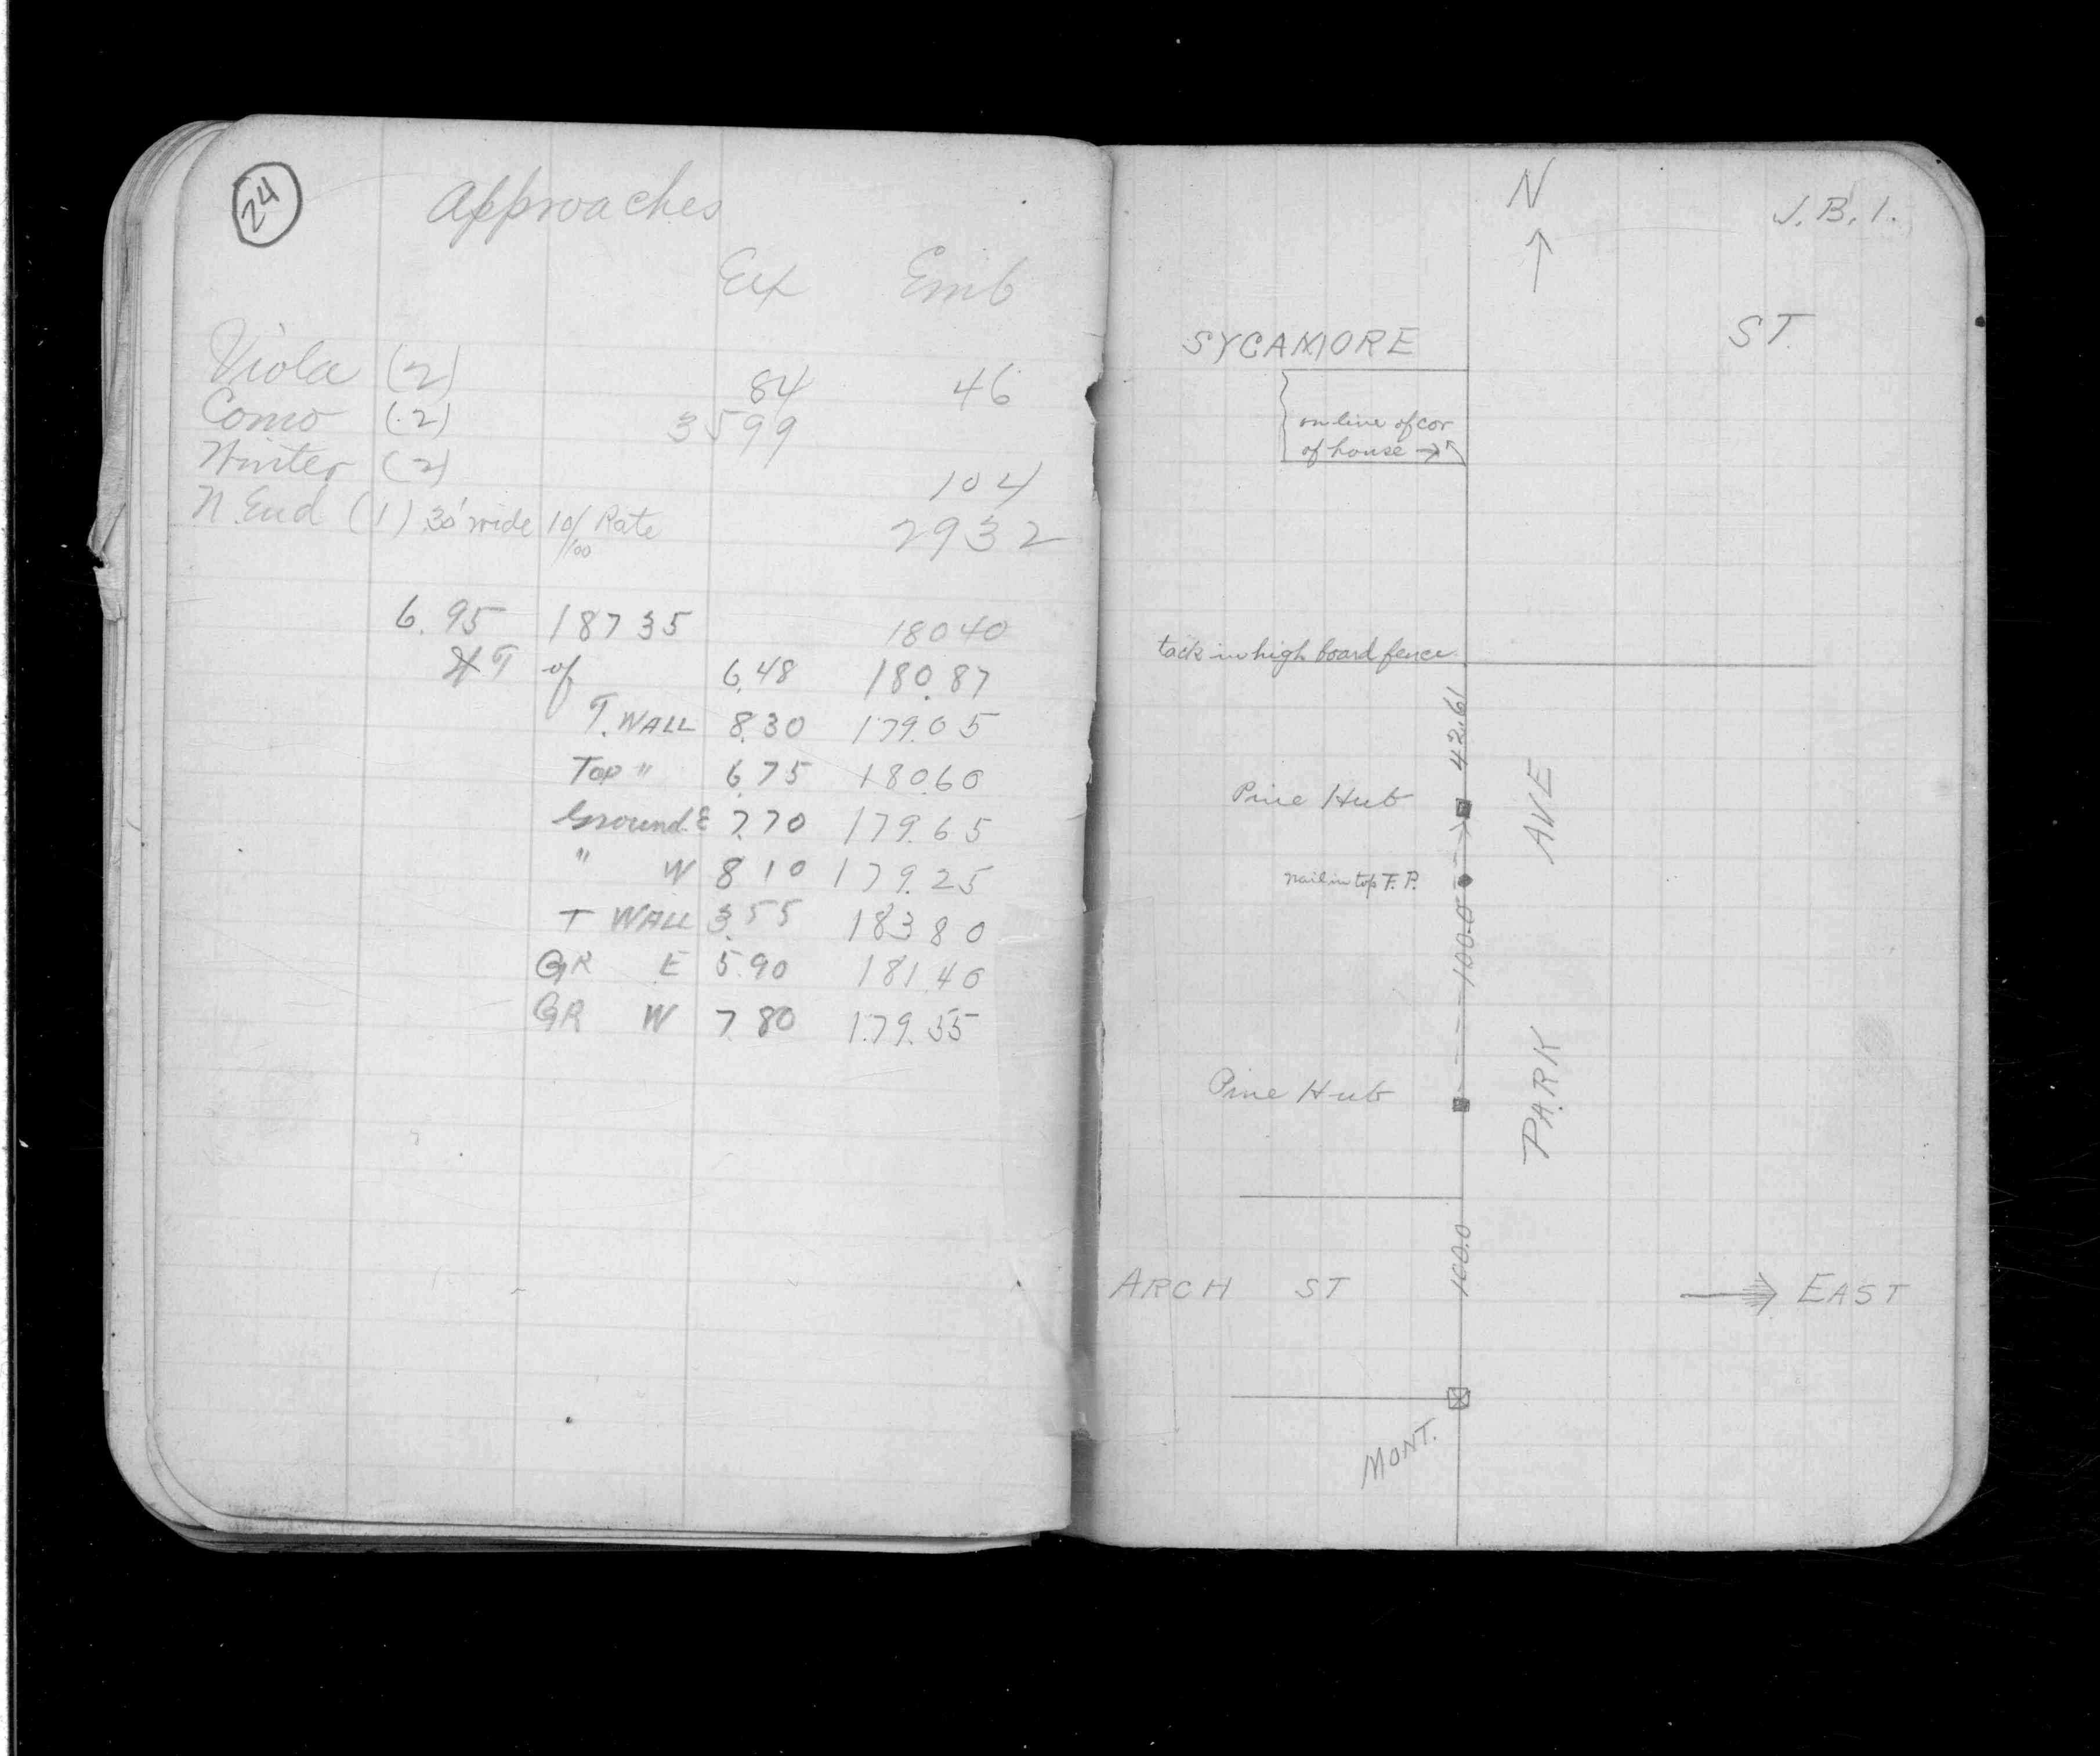 24
Approaches
Ex Emb
Viola (2) 84 46
Como (2) 3599
Winter (2) 104
N. End (1) 30' wide 10/100 Rate 2932
6.95 187 35 180 40
of 6.48 180.87
T. WALL 8.30 179.05
Top " 6.75 180.60
Ground E 7.70 179.65
" W 8 10 179.25
T WALL 3.55 183 80
GR E 5.90 181.40
GR W 7 80 179.55
N
J. B. 1.
SYCAMORE ST.
on line of cor
of house →
tack in high board fence
42.61
Pine Hub
AVE
nail in top F. P.
100.0
Pine Hub
PARK
100.0
ARCH ST
EAST
MONT.